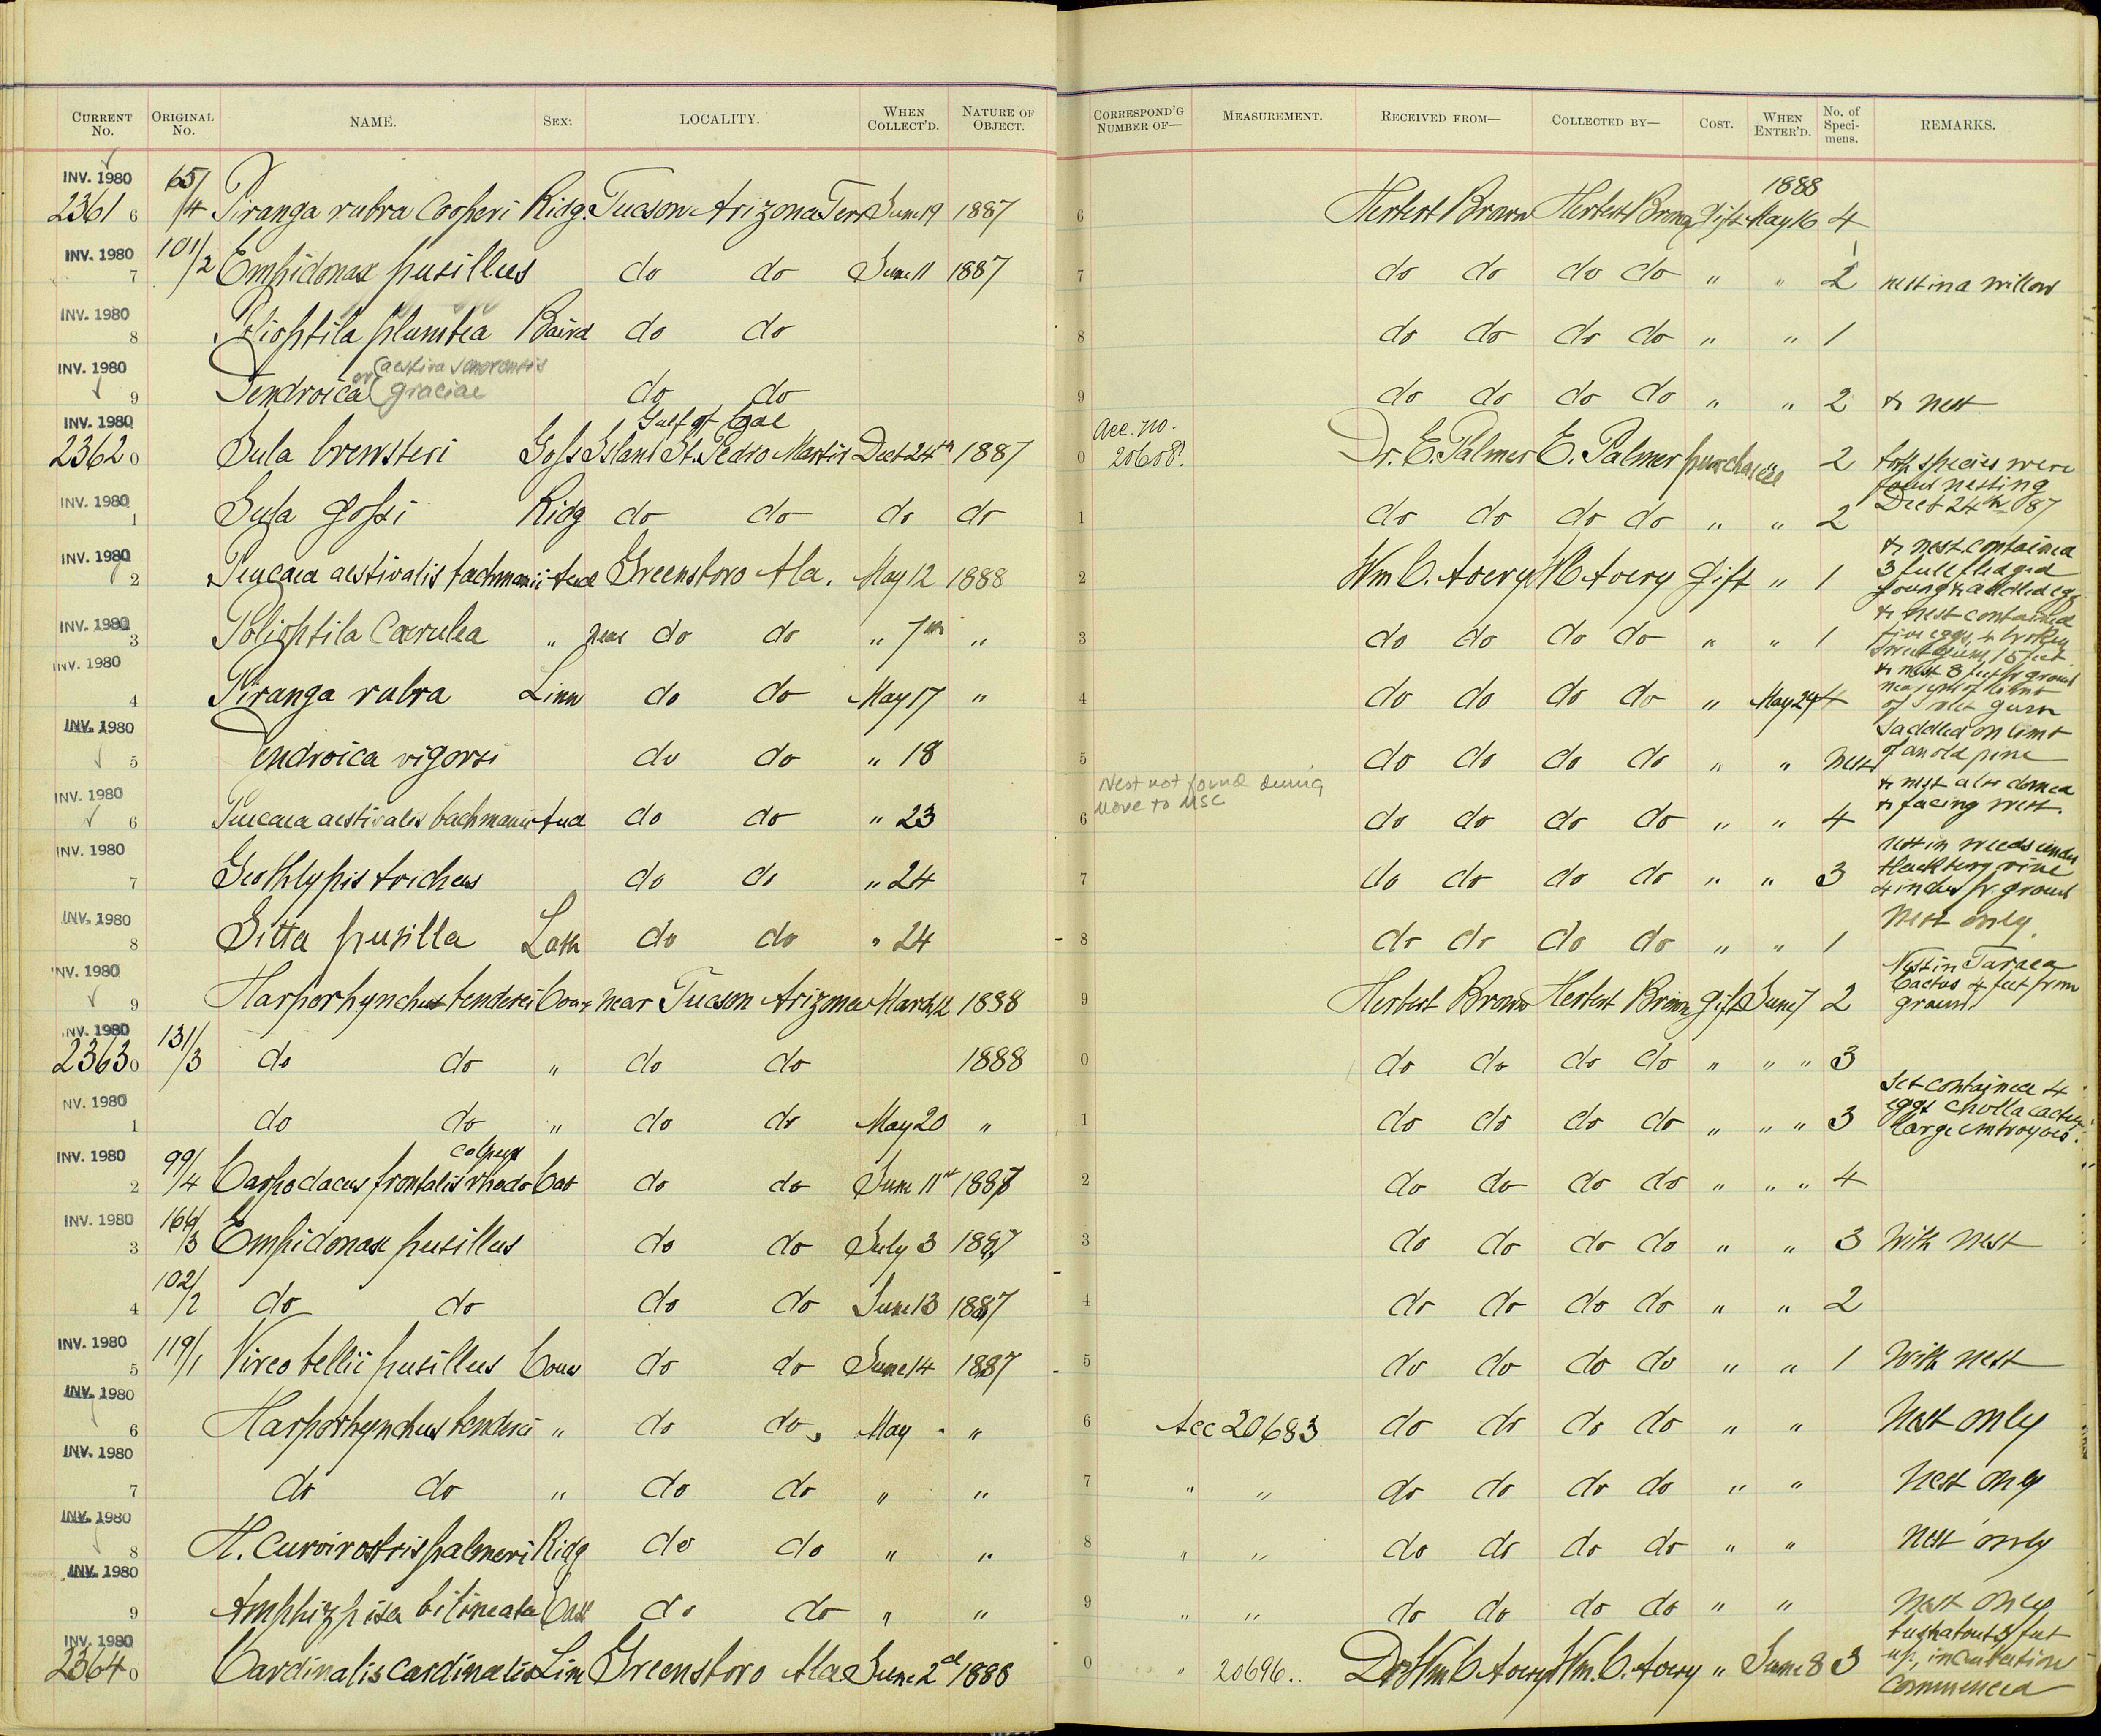 CURRENT No. ORIGINAL No. NAME. SEX. LOCALITY. WHEN COLLECT'D. NATURE OF OBJECT. CORRESPOND'G NUMBER OF— MEASUREMENT. RECEIVED FROM— COLLECTED BY— COST. WHEN ENTER'D. No. of Specimens. REMARKS.
INV. 1980
23616 65/4 Piranga rubra Cooperi Ridg. Tucson Arizona Terr June 19 1887 6 Herbert Brown Herbert Brown Gift 1888 May 16 4
INV. 1980
7 101/2 Empidonax pusillus do do June 11 1887 7 do do do do " " 2 nest in a willow
INV. 1980
8 Polioptila plumbea Baird do do 8 do do do do " " 1
INV. 1980
9 Dendroica or aestiva sonorensis graciae do do 9 do do do do " " 2 & nest
INV. 1980
23620 Sula brewsteri Goss Gulf of Cal Island St. Pedro Martir Dect 24th 1887 0 Acc. no. 20608. Dr. E. Palmer E. Palmer purchase " 2 both species were found nesting Dect 24th 87
INV. 1980
1 Sula gossi Ridg do do do do 1 do do do do " " 2
INV. 1980
2 Peucaea aestivalis bachmanii Aud Greensboro Ala. May 12 1888 2 Wm C. Avery WC Avery Gift " 1 & nest contained 3 full fledged young & addled egg
INV. 1980
3 Polioptila Caerulea " near do do " 7th " 3 do do do do " " 1 & nest contained five eggs, 4 broken sweet gum, 15 feet
INV. 1980
4 Piranga rubra Linn do do May 17 " 4 do do do do " May 24 4 & nest 8 feet fr ground near end of limb of sweet gum
INV. 1980
5 Dendroica vigorsi do do " 18 5 do do do do " " nest saddled on limb of an old pine
Nest not found during move to MSC
INV. 1980
6 Peucaea aestivalis bachmanii Aud do do " 23 6 do do do do " " 4 & nest also domed & facing west.
INV. 1980
7 Geothlypis trichas do do " 24 7 do do do do " " 3 nest in weeds under blackberry vine 4 inches fr. ground
INV. 1980
8 Sitta pusilla Lath do do " 24 8 do do do do " " 1 Nest only.
INV. 1980
9 Harporhynchus bendirei Coues near Tucson Arizona March 12 1888 9 Herbert Brown Herbert Brown gift June 7 2 Nest in Cactus 4 feet from ground
INV. 1980
23630 131/3 do do " do do 1888 0 do do do do " " " 3
INV. 1980
1 do do " do do May 20 " 1 do do do do " " " 3 Set contained 4 eggs Cholla cactus large embryoes.
INV. 1980
2 99/4 Carpodacus frontalis rhodocolpus Cab do do June 11th 1887 2 do do do do " " " 4
INV. 1980
3 166/3 Empidonax pusillus do do July 3 1887 3 do do do do " " 3 With nest
4 102/2 do do do do June 13 1887 4 do do do do " " 2
INV. 1980
5 119/1 Vireo bellii pusillus Coues do do June 14 1887 5 do do do do " " 1 With nest
INV. 1980
6 Harporhynchus bendirei " do do May " 6 Acc 20683 do do do do " " Nest only
INV. 1980
7 do do " do do " " 7 " " do do do do " " Nest only
INV. 1980
8 H. curvirostris palmeri Ridg do do " " 8 " " do do do do " " Nest only
INV. 1980
9 Amphizpiza bilineata Cass do do " " 9 " " do do do do " " Nest only
INV. 1980
23640 Cardinalis cardinalis Lin Greensboro Ala June 2d 1888 0 " 20696.. Dr Wm C Avery Wm. C. Avery " June 8 3 bush about 5 feet up, incubation commenced